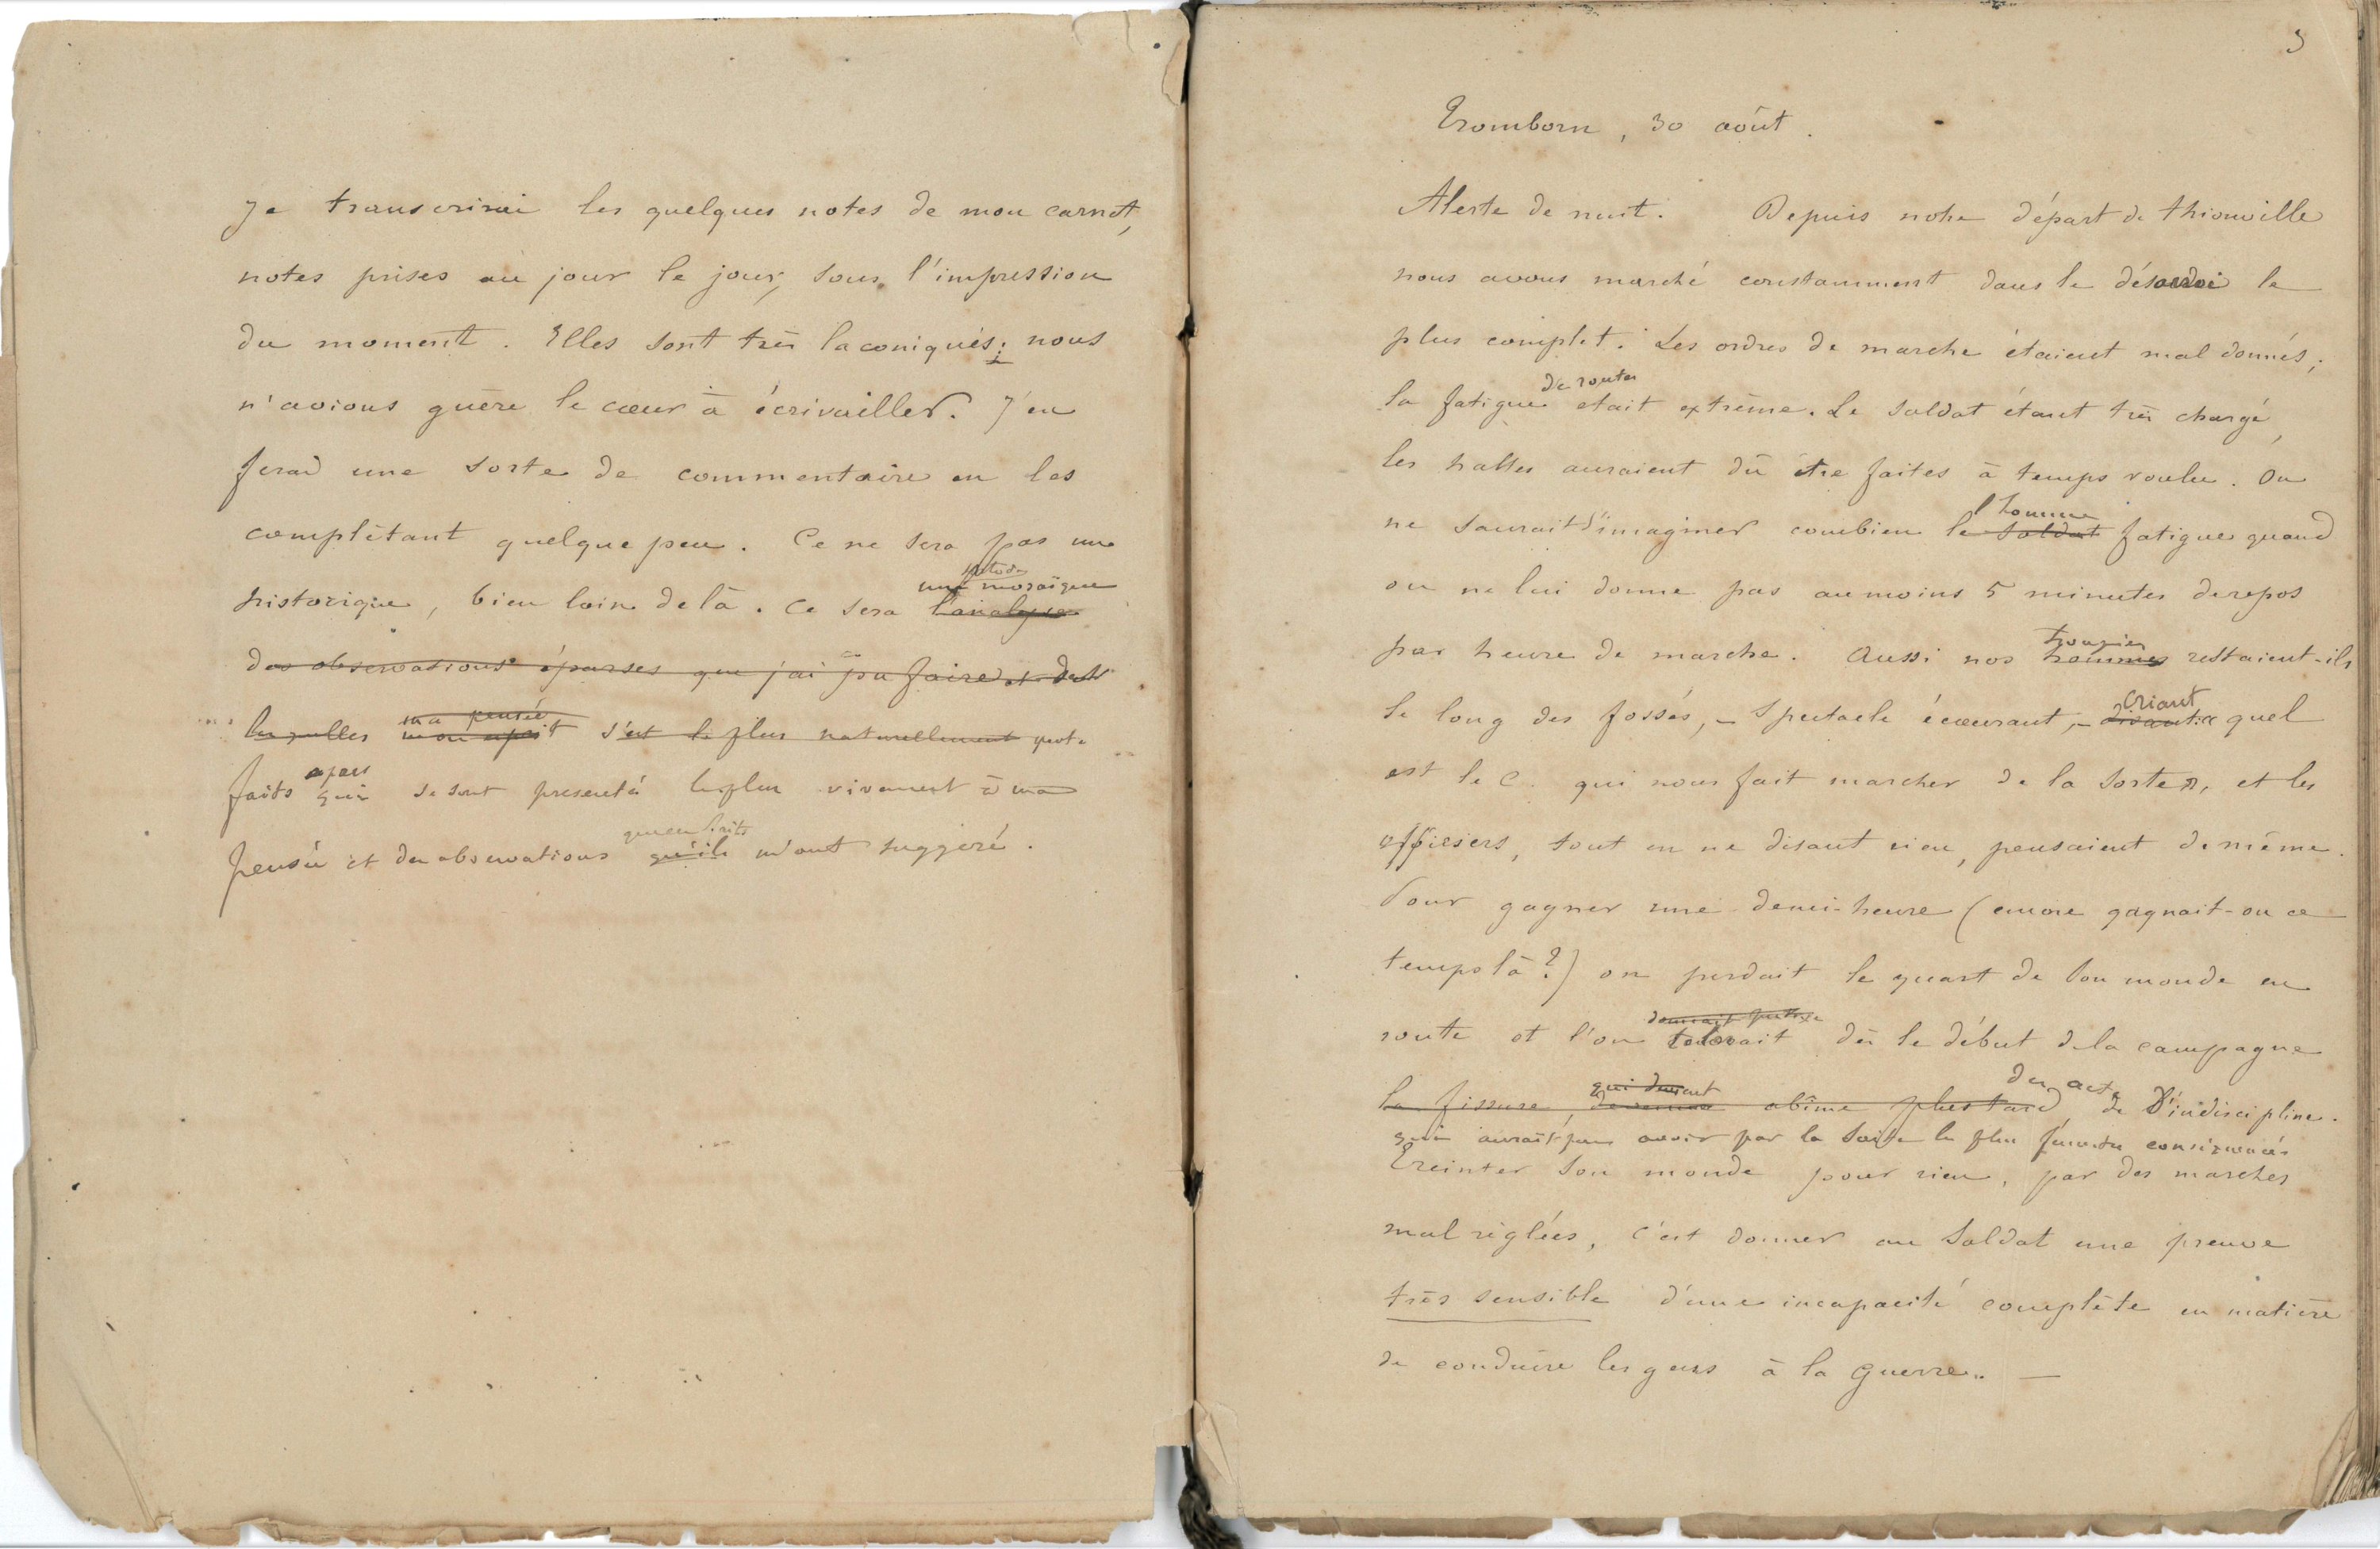 Je transcrirai les quelques notes de mon carnet,
notes prises au jour le jour, sous l'impression
du moment. Elles sont très laconiques; nous
n'avions guère le cœur à écrivailler. J'en
ferai une sorte de commentaire en les
complétant quelque peu. Ce ne sera pas une
historique, bien loin de là. Ce sera l'analyse
une mosaïque
des observations éparses que j'ai pu faire et dont
lesquelles mon esprit s'est le plus naturellement
ma pensée
faits qui se sont présentés le plus vivement à ma
épars
pensée et des observations qu'ils m'ont suggéré.
3
Tromborn, 30 août.
Alerte de nuit. Depuis notre départ de Thionville
nous avons marché constamment dans le désordre le
plus complet. Les ordres de marche étaient mal donnés;
de route
la fatigue était extrême. Le soldat étant très chargé,
les haltes auraient dû être faites à temps voulu. On
l'homme
ne saurait s'imaginer combien le soldat fatigue quand
on ne lui donne pas au moins 5 minutes de repos
troupiers
par heure de marche. Aussi nos hommes restaient-ils
criant
le long des fossés, – spectacle écœurant, – disant: « quel
est le C. qui nous fait marcher de la sorte », et les
officiers, tout en ne disant rien, pensaient de même.
Pour gagner une demi-heure (encore gagnait-on ce
temps là?) on perdait le quart de son monde en
route et l'on tolérait dès le début de la campagne
qui devient
des actes
la fissure, abîme plus tard, de d'indiscipline.
qui aurait pu avoir par la suite les plus funestes conséquences
Ereinter son monde pour rien, par des marches
mal réglées, c'est donner au soldat une preuve
très sensible d'une incapacité complète en matière
de conduire les gens à la guerre. —